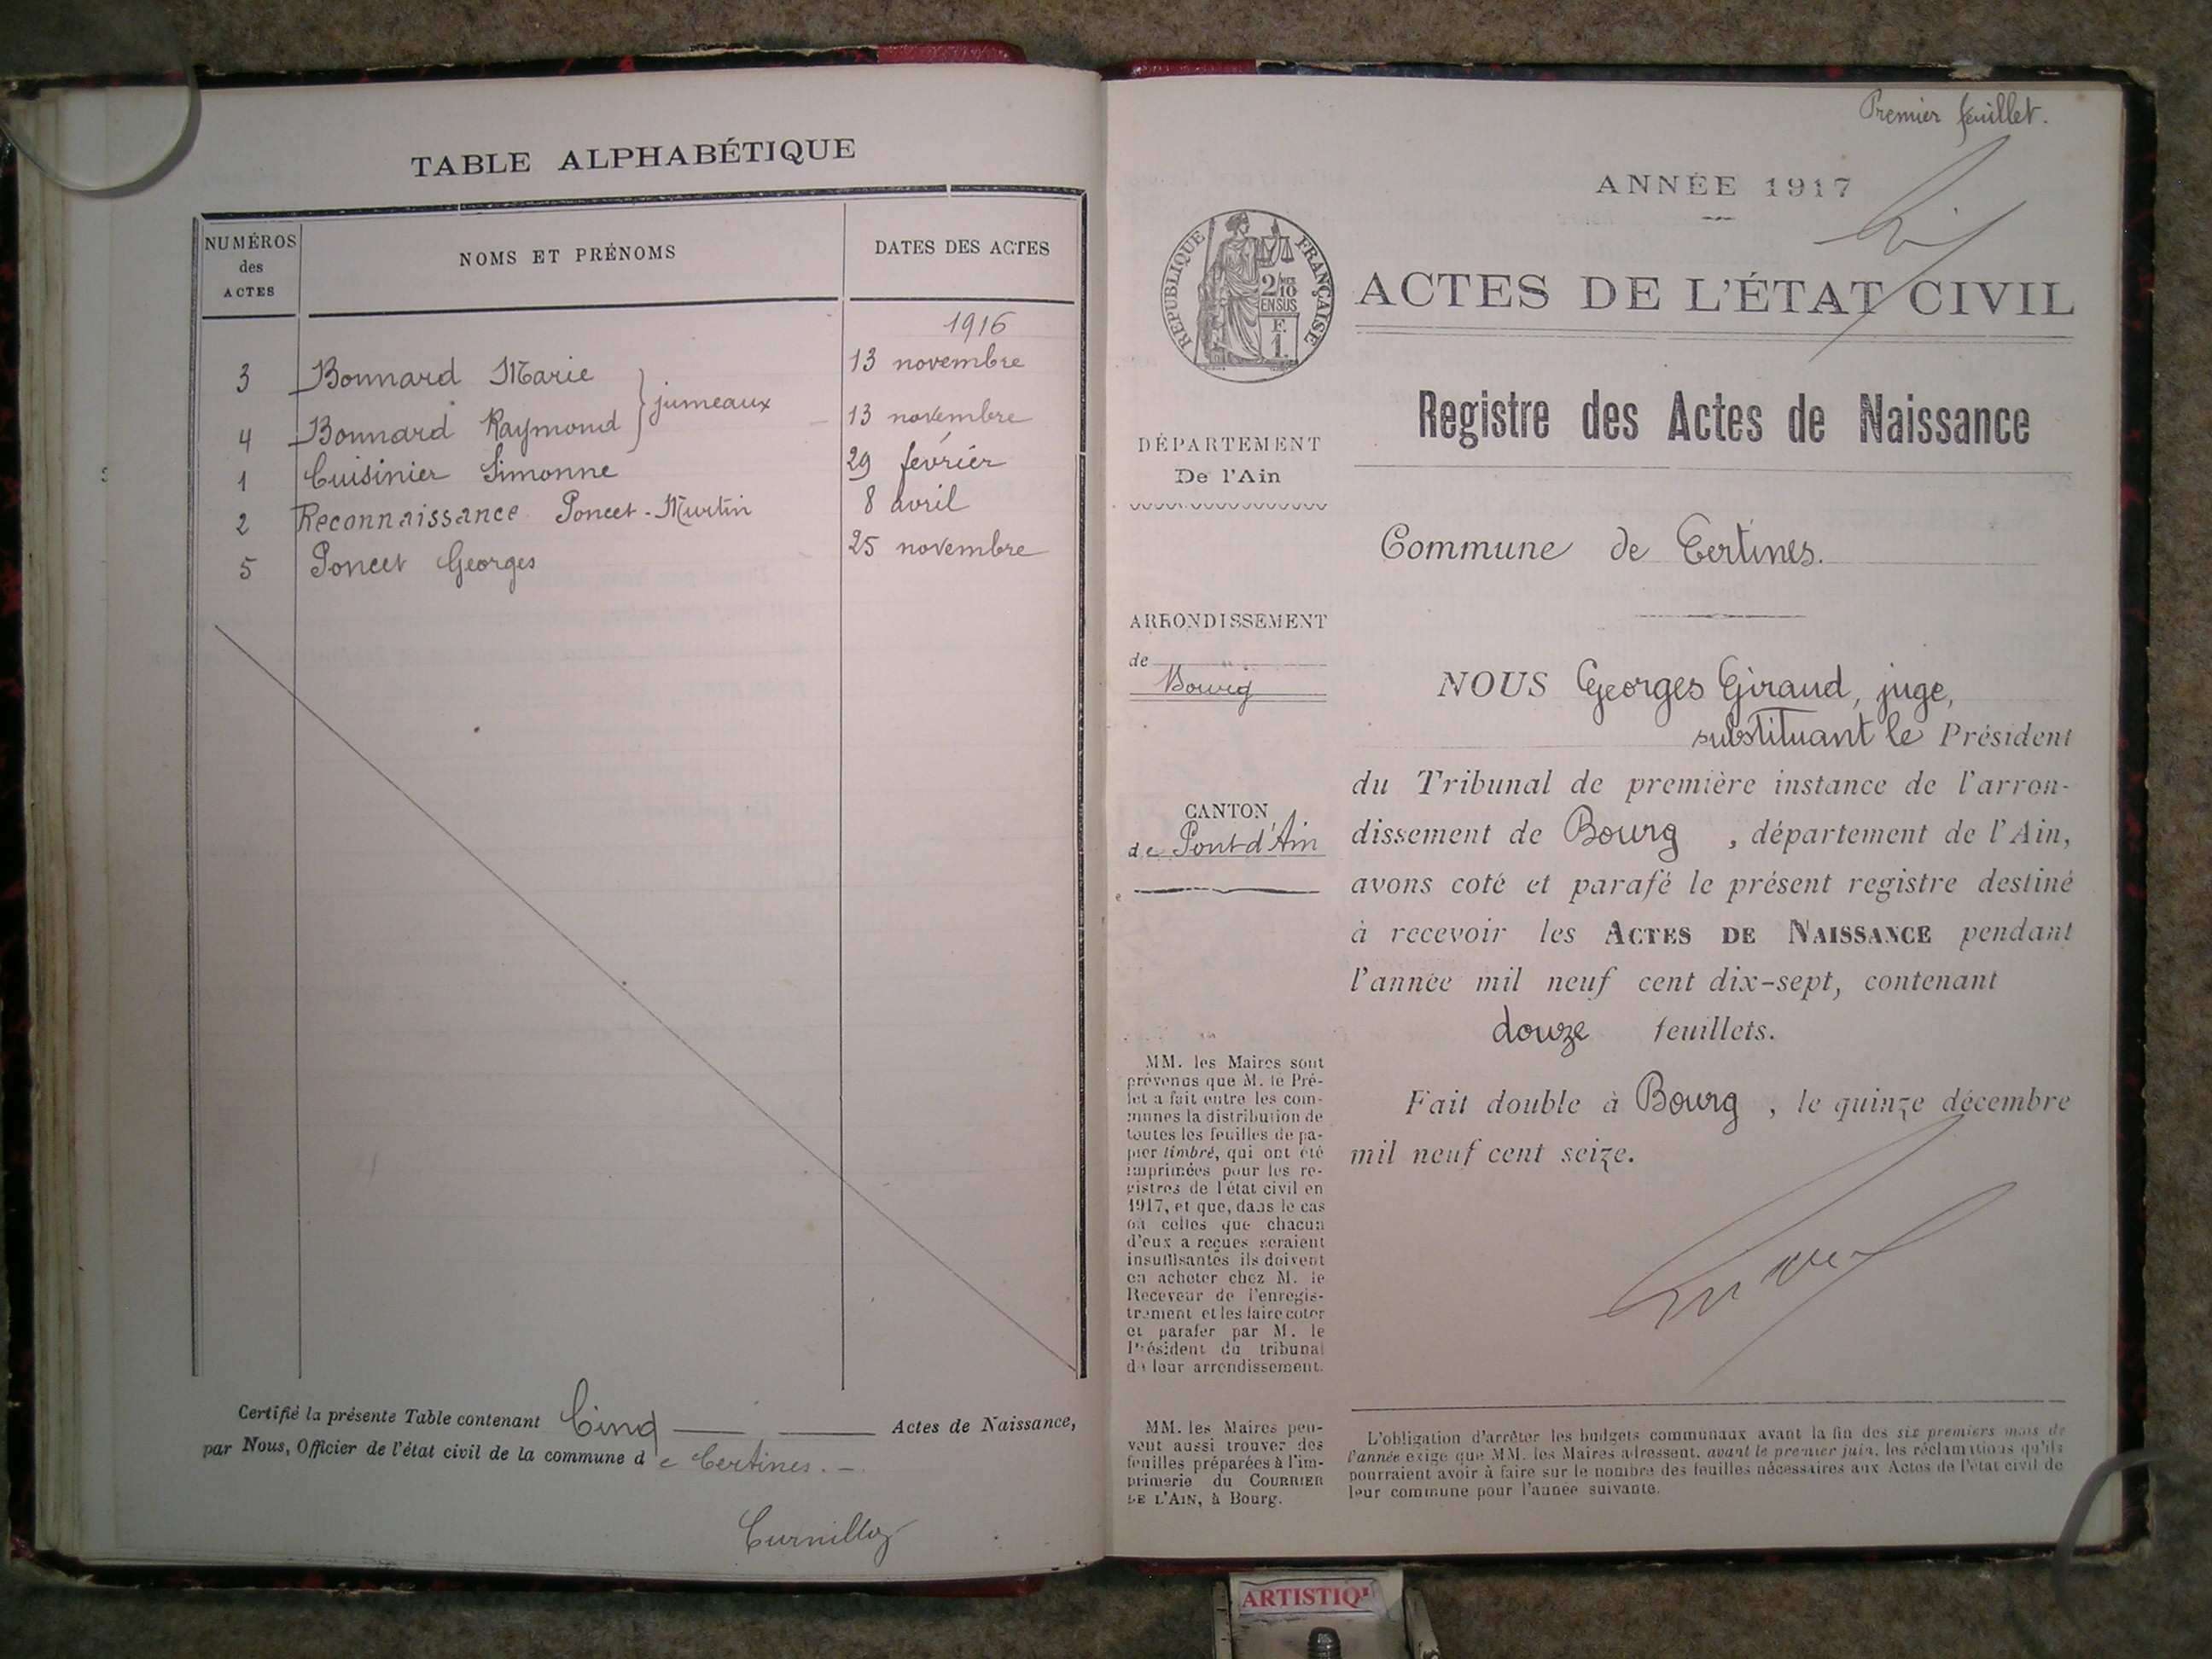 TABLE ALPHABÉTIQUE
NUMÉROS
des
ACTES
NOMS ET PRÉNOMS
DATES DES ACTES
1916
3 Bonnard Marie 13 novembre
jumeaux
4 Bonnard Raymond 13 novembre
1 Cuisinier Simonne 29 février
2 Reconnaissance Poncet-Murtin 8 avril
5 Poncet Georges 25 novembre
Certifié la présente Table contenant Cinq Actes de Naissance,
par Nous, Officier de l'état civil de la commune de Certines.
Premier feuillet.
ANNÉE 1917
RÉPUBLIQUE FRANÇAISE
2/10
EN SUS
F.
1.
ACTES DE L'ÉTAT CIVIL
Registre des Actes de Naissance
DÉPARTEMENT
De l'Ain
Commune de Certines.
ARRONDISSEMENT
de
Bourg
CANTON
de Pont-d'Ain
NOUS Georges Giraud, juge,
substituant le Président
du Tribunal de première instance de l'arron-
dissement de Bourg , département de l'Ain,
avons coté et parafé le présent registre destiné
à recevoir les ACTES DE NAISSANCE pendant
l'année mil neuf cent dix-sept, contenant
douze feuillets.
Fait double à Bourg , le quinze décembre
mil neuf cent seize.
MM. les Maires sont
prévenus que M. le Pré-
fet a fait entre les com-
munes la distribution de
toutes les feuilles de pa-
pier timbré, qui ont été
imprimées pour les re-
gistres de l'état civil en
1917, et que, dans le cas
où celles que chacun
d'eux a reçues seraient
insuffisantes ils doivent
en acheter chez M. le
Receveur de l'enregis-
trement et les faire coter
et parafer par M. le
Président du tribunal
de leur arrondissement.
MM. les Maires peu-
vent aussi trouver des
feuilles préparées à l'im-
primerie du COURRIER
DE L'AIN, à Bourg.
L'obligation d'arrêter les budgets communaux avant la fin des six premiers mois de
l'année exige que MM. les Maires adressent, avant le premier juin, les réclamations qu'ils
pourraient avoir à faire sur le nombre des feuilles nécessaires aux Actes de l'état civil de
leur commune pour l'année suivante.
ARTISTIQ